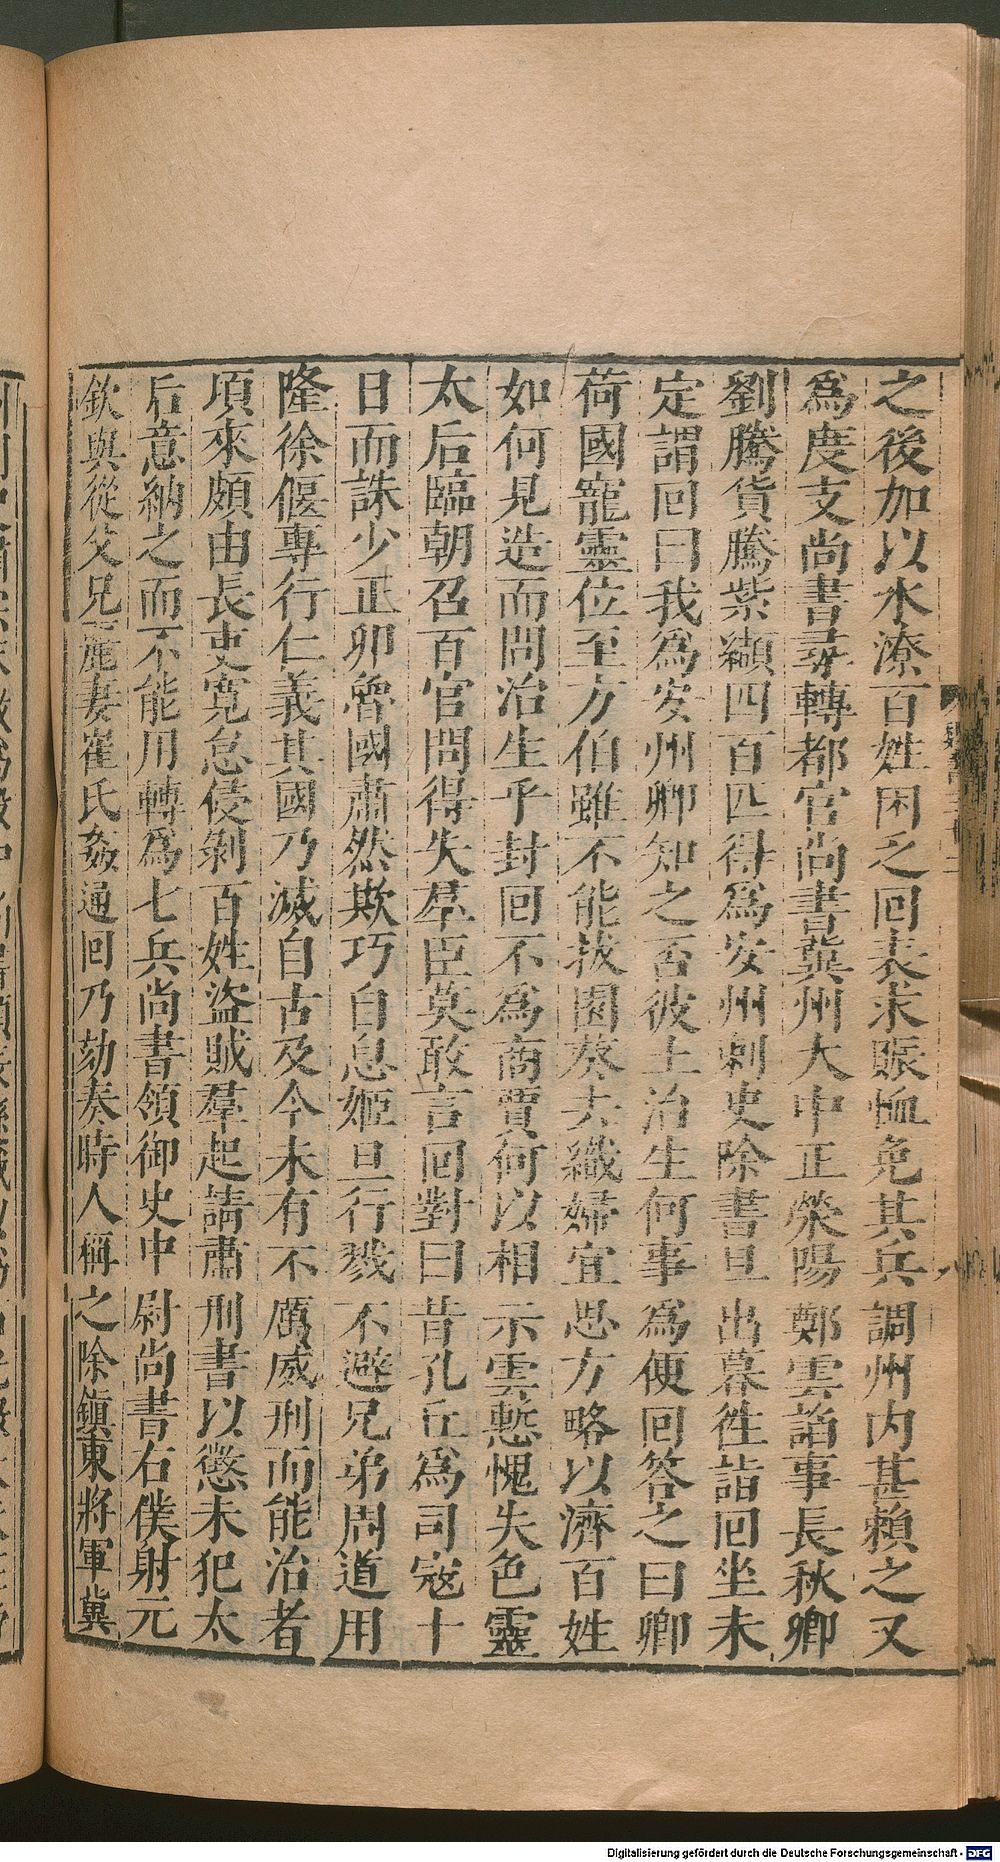 之後加以水潦百姓困乏回表求賑恤免其兵調州内甚賴之又
爲度支尚書尋轉都官尚書冀州大中正滎陽鄭雲諂事長秋卿
劉騰貨騰紫纈四百匹得爲安州刺史除書旦出暮徃詣回坐未
定謂回曰我爲安州卿知之否彼土治生何事爲便回答之曰卿
荷國寵靈位至方伯雖不能拔園葵去織婦宜思方略以濟百姓
如何見造而問治生乎封回不爲商賈何以相示雲慙愧失色靈
太后臨朝召百官問得失羣臣莫敢言回對曰昔孔丘爲司寇十
日而誅少正卯魯國肅然欺巧自息姬旦行戮不避兄弟周道用
隆徐偃專行仁義其國乃滅自古及今未有不厲威刑而能治者
項來頗由長吏寬怠侵剝百姓盜賊羣起請肅刑書以懲未犯太
后意納之而不能用轉爲七兵尚書領御史中尉尚書右僕射元
欽與從父兄麗妻崔氏姦通回乃劾奏時人稱之除鎮東將軍冀
八
Digitalisierung gefördert durch die Deutsche Forschungsgemeinschaft - DFG